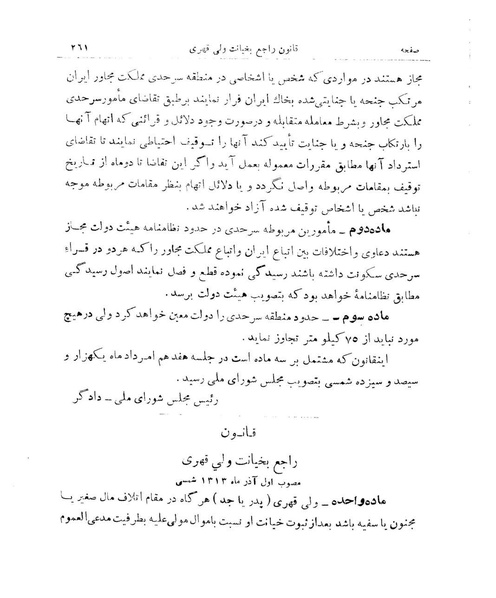 صفحه قانون راجع بخیانت ولی قهری ۲۶۱
مجاز هستند در مواردی که شخص یا اشخاصی در منطقه سرحدی مملکت مجاور ایران
مرتکب جنحه یا جنایتی شده بخاك ایران فرار نمایند برطبق تقاضای مأمورسرحدی
مملکت مجاور وبشرط معامله متقابله و درصورت وجود دلائل و قرائنی که اتهام آنها
را بارتکاب جنحه و یا جنایت تأیید کند آنها را توقیف احتیاطی نمایند تا تقاضای
استرداد آنها مطابق مقررات معموله بعمل آید واگر این تقاضا تا دوماه از تاریخ
توقیف بمقامات مربوطه واصل نگردد و یا دلائل اتهام بنظر مقامات مربوطه موجه
نباشد شخص یا اشخاص توقیف شده آزاد خواهند شد.
ماده‌دوم ـ مأمورین مربوطه سرحدی در حدود نظامنامه هیئت دولت مجاز
هستند دعاوی واختلافات بین اتباع ایران واتباع مملکت مجاور راکه هردو در قراء
سرحدی سکونت داشته باشند رسیدگی نموده قطع و فصل نمایند اصول رسیدگی
مطابق نظامنامهٔ خواهد بود که بتصویب هیئت دولت برسد.
ماده سوم ـ حدود منطقه سرحدی را دولت معین خواهد کرد ولی درهیچ
مورد نباید از ۷۵ کیلو متر تجاوز نماید.
اینقانون که مشتمل بر سه ماده است در جلسه هفدهم امرداد ماه یکهزار و
سیصد و سیزده شمسی بتصویب مجلس شورای ملی رسید.
رئیس مجلس شورای ملی ـ دادگر
قانون
راجع بخیانت ولی قهری
مصوب اول آذر ماه ۱۳۱۳ شمسی
ماده‌واحده ـ ولی قهری (پدر یا جد) هرگاه در مقام اتلاف مال صغیر یا
مجنون یا سفیه باشد بعداز ثبوت خیانت او نسبت باموال مولی‌علیه بطرفیت مدعی‌العموم